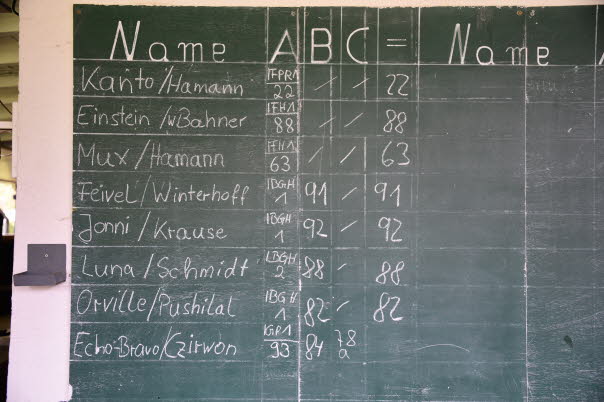 Name A B C = Name
Kanto/Hamann IFPR1 22 / / 22
Einstein/wBahner IFH1 88 / / 88
Mux/Hamann IFH1 63 / / 63
Feivel/Winterhoff IBGH 1 91 / 91
Jonni/Krause IBGH 1 92 / 92
Luna/Schmidt IBGH 2 88 / 88
Orville/Pushilal IBGH 1 82 / 82
Echo-Bravo/Czirwon IGP1 93 84 78 a